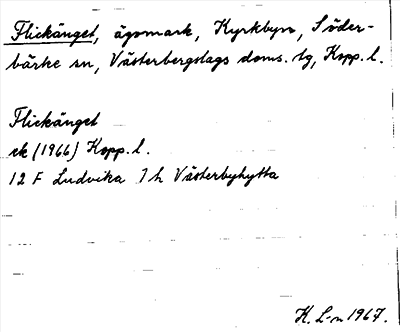 Flickänget, ägomark, Kyrkbyn, Söder-
bärke sn, Västerbergslags doms. tg, Kopp. l.
Flickänget
ek (1966) Kopp. l.
12 F Ludvika J h Västerbyhytta
K. L-n 1967.